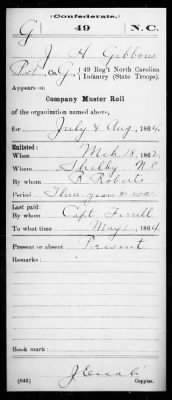 (Confederate.)
G 49 N.C.
J H Gibbons
Pvt, Co. G, 49 Reg't North Carolina
Infantry (State Troops).
Appears on
Company Muster Roll
of the organization named above,
for July & Aug, 1864.
Enlisted:
When Mch 18, 1862.
Where Shelby N C
By whom B Roberts
Period Three years or war
Last paid:
By whom Capt Ferrill
To what time May 1, 1864.
Present or absent Present
Remarks:
Book mark:
(642) Copyist.